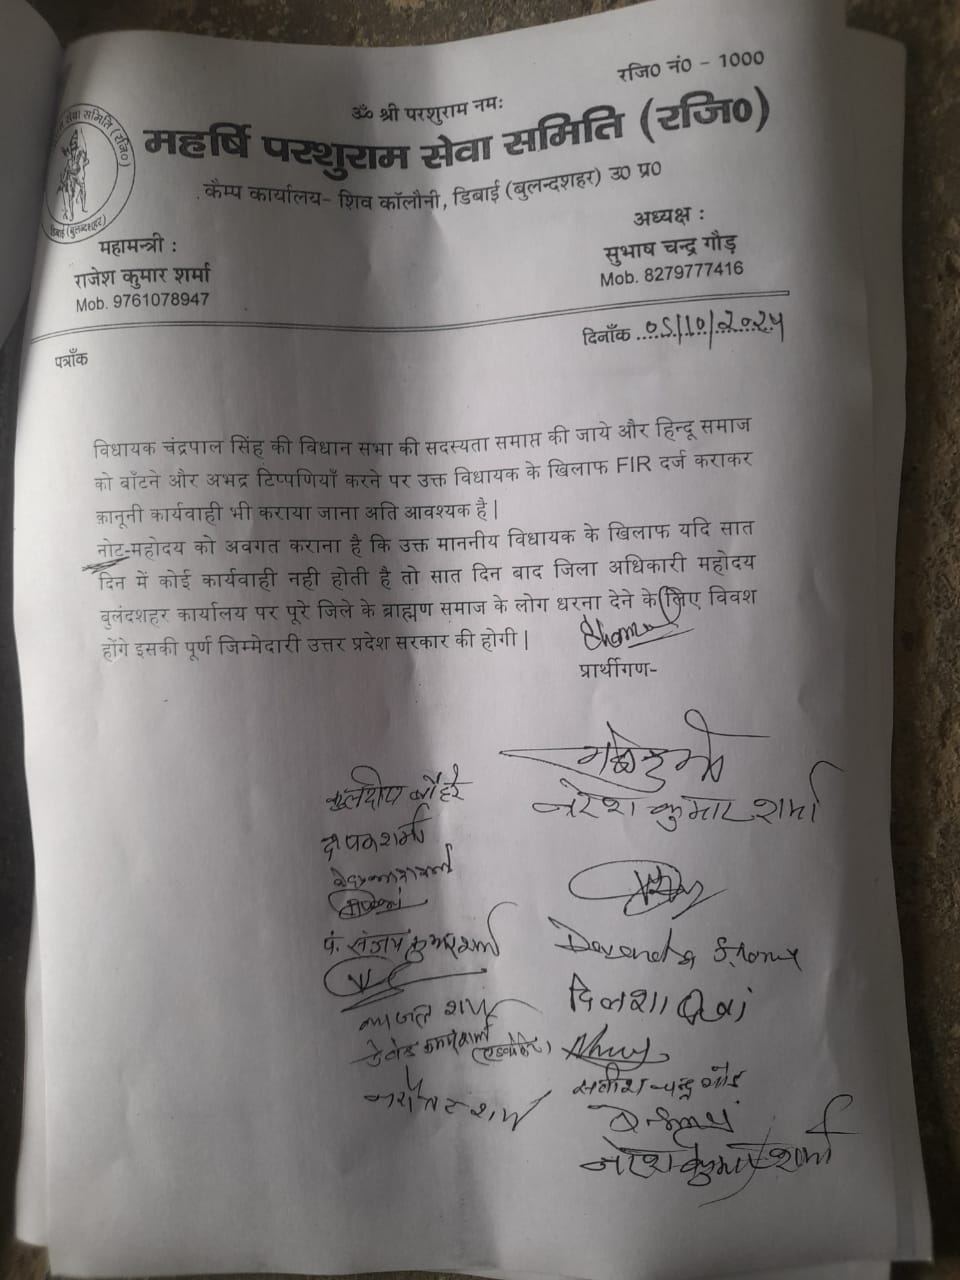 रजि0 नं0 - 1000
ॐ श्री परशुराम नमः
महर्षि परशुराम सेवा समिति (रजि०)
कैम्प कार्यालय- शिव कॉलौनी, डिबाई (बुलन्दशहर) उ0 प्र0
सेवा समिति (रजि०)
डिबाई (बुलन्दशहर)
महामन्त्री :
राजेश कुमार शर्मा
Mob. 9761078947
अध्यक्ष :
सुभाष चन्द्र गौड़
Mob. 8279777416
दिनाँक 05/10/2024
पत्राँक
विधायक चंद्रपाल सिंह की विधान सभा की सदस्यता समाप्त की जाये और हिन्दू समाज
को बाँटने और अभद्र टिप्पणियाँ करने पर उक्त विधायक के खिलाफ FIR दर्ज कराकर
क़ानूनी कार्यवाही भी कराया जाना अति आवश्यक है |
नोट-महोदय को अवगत कराना है कि उक्त माननीय विधायक के खिलाफ यदि सात
दिन में कोई कार्यवाही नही होती है तो सात दिन बाद जिला अधिकारी महोदय
बुलंदशहर कार्यालय पर पूरे जिले के ब्राह्मण समाज के लोग धरना देने के लिए विवश
होंगे इसकी पूर्ण जिम्मेदारी उत्तर प्रदेश सरकार की होगी |
प्रार्थीगण-
नरेश कुमार शर्मा
कुलदीप
शर्मा
पं. संजय कुमार शर्मा
Devendra Sharma
शर्मा
(एडवोकेट)
सतीश चन्द्र गौड़
शर्मा
नरेश कुमार शर्मा